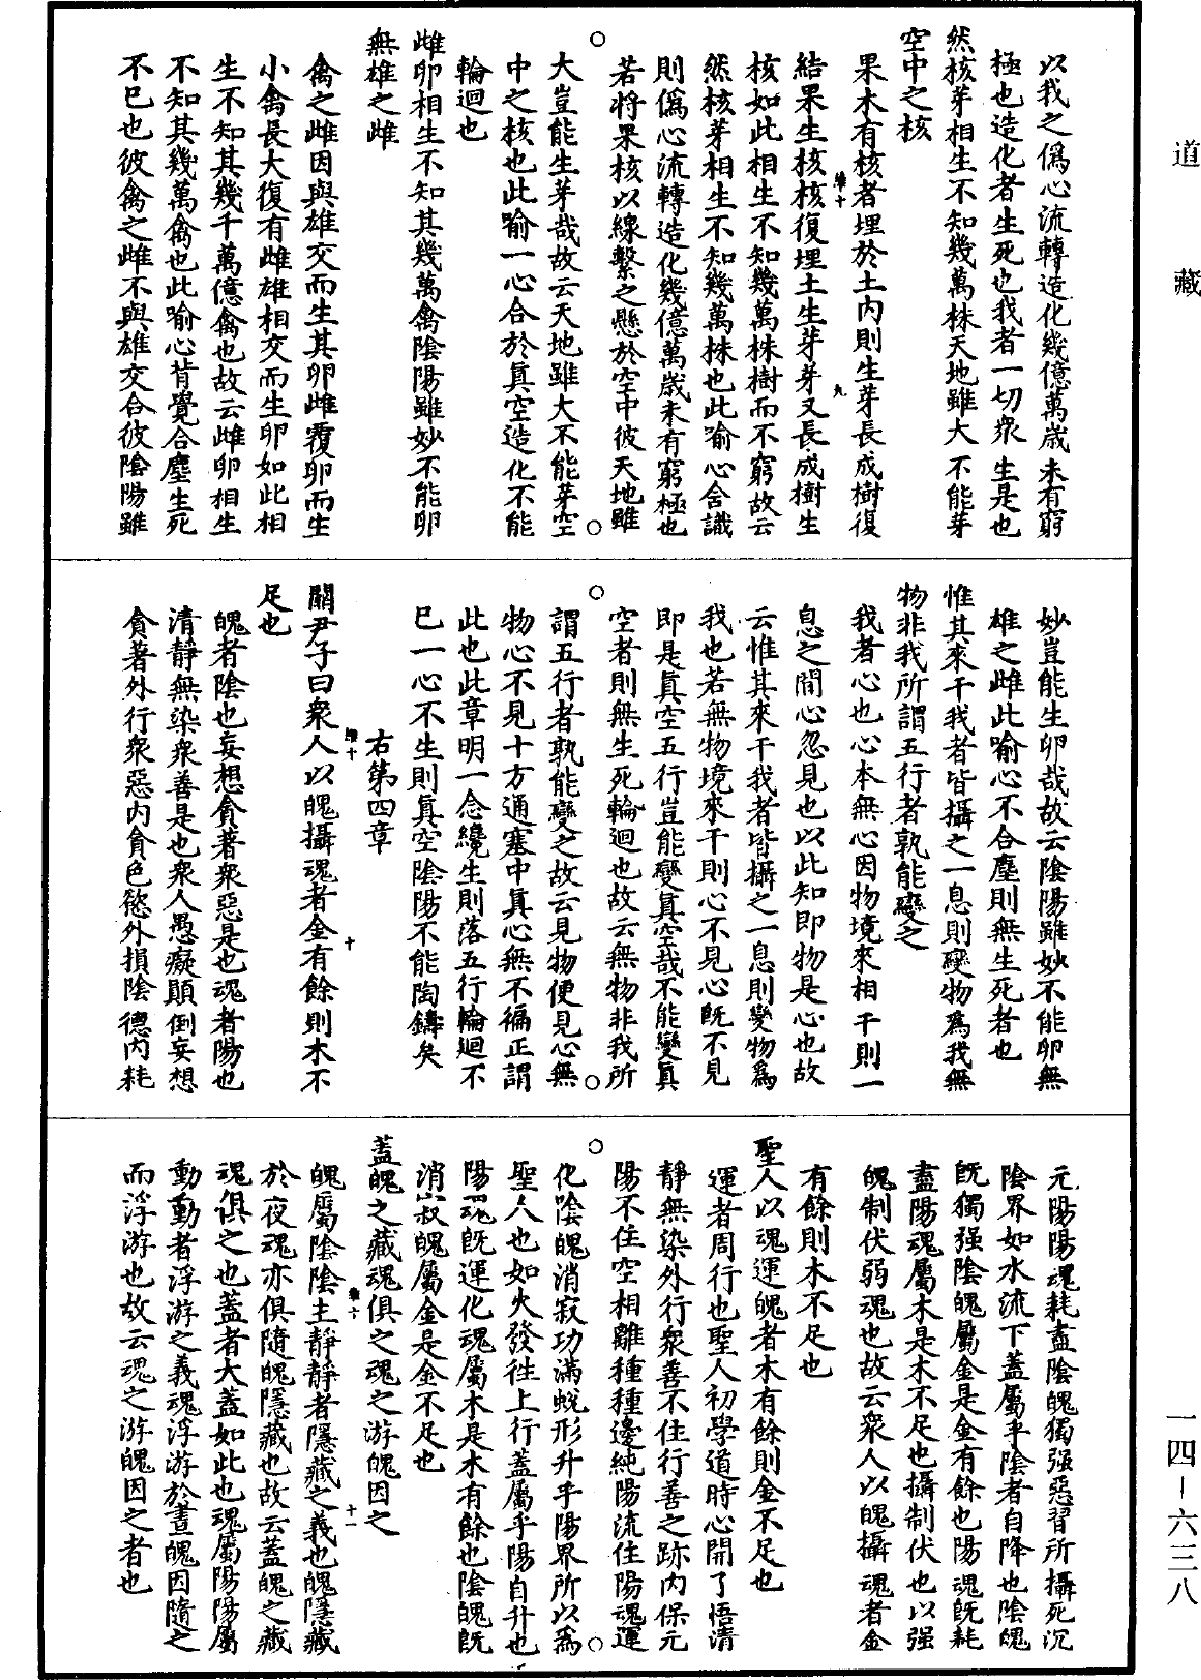 道藏
以我之僞心流轉造化幾億萬歲未有窮
極也造化者生死也我者一切衆生是也
然核芽相生不知幾萬株天地雖大不能芽
空中之核
果木有核者埋於土內則生芽長成樹復
結果生核核復埋土生芽芽又長成樹生
核如此相生不知幾萬株樹而不窮故云
然核芽相生不知幾萬株也此喻心舍識
則僞心流轉造化幾億萬歲未有窮極也
若將果核以線繫之懸於空中彼天地雖
大豈能生芽哉故云天地雖大不能芽空
中之核也此喻一心合於眞空造化不能
輪迴也
雌卵相生不知其幾萬禽陰陽雖妙不能卵
無雄之雌
禽之雌因與雄交而生其卵雌覆卵而生
小禽長大復有雌雄相交而生卵如此相
生不知其幾千萬億禽也故云雌卵相生
不知其幾萬禽也此喻心背覺合塵生死
不已也彼禽之雌不與雄交合彼陰陽雖
妙豈能生卵哉故云陰陽雖妙不能卵無
雄之雌此喻心不合塵則無生死者也
惟其來干我者皆攝之一息則變物爲我無
物非我所謂五行者孰能變之
我者心也心本無心因物境來相干則一
息之間心忽見也以此知即物是心也故
云惟其來干我者皆攝之一息則變物爲
我也若無物境來干則心不見心旣不見
即是眞空五行豈能變眞空哉不能變眞
空者則無生死輪迴也故云無物非我所
謂五行者孰能變之故云見物便見心無
物心不見十方通塞中眞心無不徧正謂
此也此章明一念纔生則落五行輪迴不
已一心不生則眞空陰陽不能陶鑄矣
右第四章
關尹子曰衆人以魄攝魂者金有餘則木不
足也
魄者陰也妄想貪著衆惡是也魂者陽也
清靜無染衆善是也衆人愚癡顛倒妄想
貪著外行衆惡內貪色慾外損陰德內耗
元陽陽魂耗盡陰魄獨强惡習所攝死沉
陰界如水流下蓋屬乎陰者自降也陰魄
旣獨强陰魄屬金是金有餘也陽魂旣耗
盡陽魂屬木是木不足也攝制伏也以强
魄制伏弱魂也故云衆人以魄攝魂者金
有餘則木不足也
聖人以魂運魄者木有餘則金不足也
運者周行也聖人初學道時心開了悟清
靜無染外行衆善不住行善之跡內保元
陽不住空相離種種邊純陽流住陽魂運
化陰魄消寂功滿蛻形升乎陽界所以爲
聖人也如火發往上行蓋屬乎陽自升也
陽魂旣運化魂屬木是木有餘也陰魄旣
消寂魄屬金是金不足也
蓋魄之藏魂俱之魂之游魄因之
魄屬陰陰主靜靜者隱藏之義也魄隱藏
於夜魂亦俱隨魄隱藏也故云蓋魄之藏
魂俱之也蓋者大蓋如此也魂屬陽陽屬
動動者浮游之義魂浮游於晝魄因隨之
而浮游也故云魂之游魄因之者也
一四-六三八